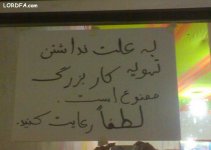 LORDFA.COM
به علت نداشتن
تهویه کار بزرگ
ممنوع است.
لطفاً رعایت کنید.